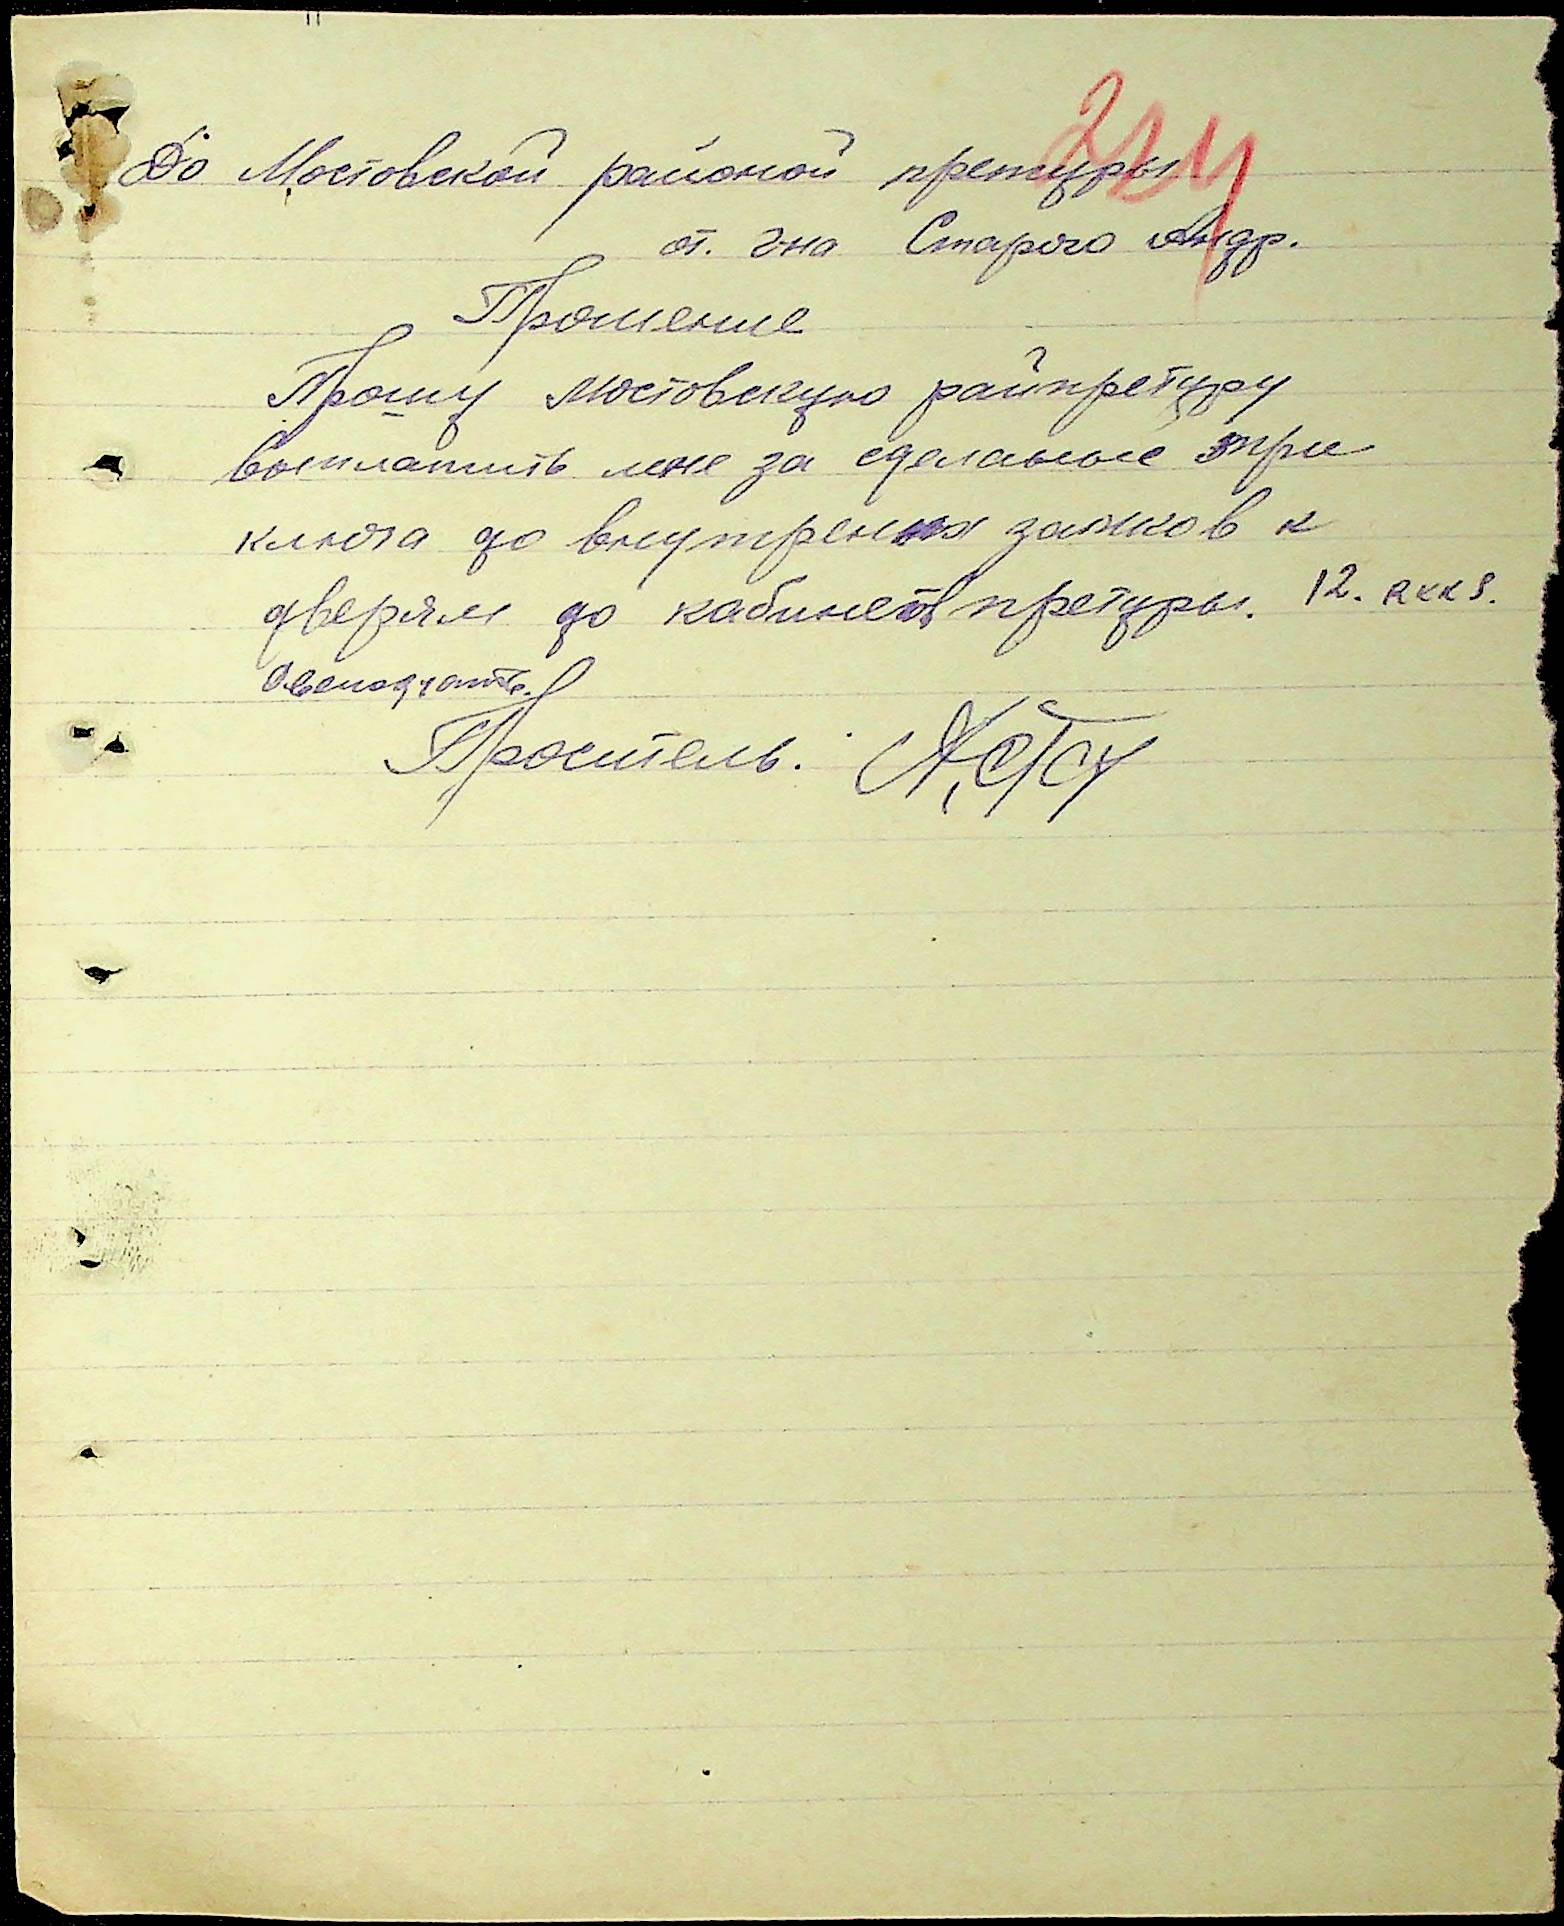 До Мостовской районой претуры
от. г-на Старого Андр.
Прошение
Прошу Мостовскую райпретуру
выплатить мне за сделаные три
ключа до внутрених замков к
дверям до кабинетов претуры. 12. RKKS.
двенадцать.
Проситель.